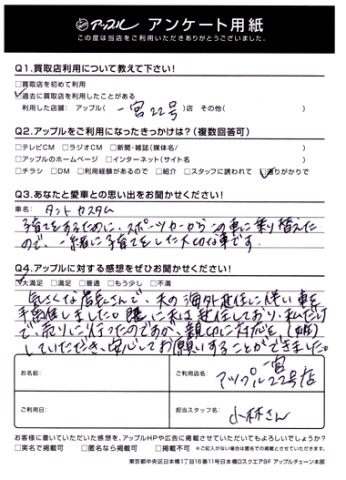 アップル アンケート用紙
この度は当店をご利用いただきありがとうございました。
Q1.買取店利用について教えて下さい!
□買取店を初めて利用
□過去に買取店を利用したことがある
利用した店舗: アップル( 一宮22号 )店 その他( )
Q2.アップルをご利用になったきっかけは?(複数回答可)
□テレビCM □ラジオCM □新聞・雑誌(媒体名/ )
□アップルのホームページ □インターネット(サイト名 )
□チラシ □DM □利用経験があるので □紹介 □スタッフに誘われて □通りがかりで
Q3.あなたと愛車との思い出をお聞かせください!
車名: タントカスタム
子育てをするために、スポーツカーからこの車に乗り替えた
ので、一緒に子育てをした大切な車です。
Q4.アップルに対する感想をぜひお聞かせください!
□大満足 □満足 □普通 □もう少し □不満
気さくな店長さんで、夫の海外赴任に伴い車を
手放しました。既に夫は赴任しており、私だけ
で、売りに行ったのですが、親切に対応を
していただき、安心してお願いすることができました。
お名前:
ご利用店名: 一宮
アップル22号店
ご利用日:
担当スタッフ名: 小林さん
お客様に書いていただいた感想を、アップルHPや広告に掲載させていただいてもよろしいでしょうか?
□実名で掲載可 □匿名なら掲載可 □掲載不可
※ご記入がない場合は匿名での掲載とさせていただきます。
東京都中央区日本橋1丁目16番11号日本橋Dスクエア8F アップルチェーン本部